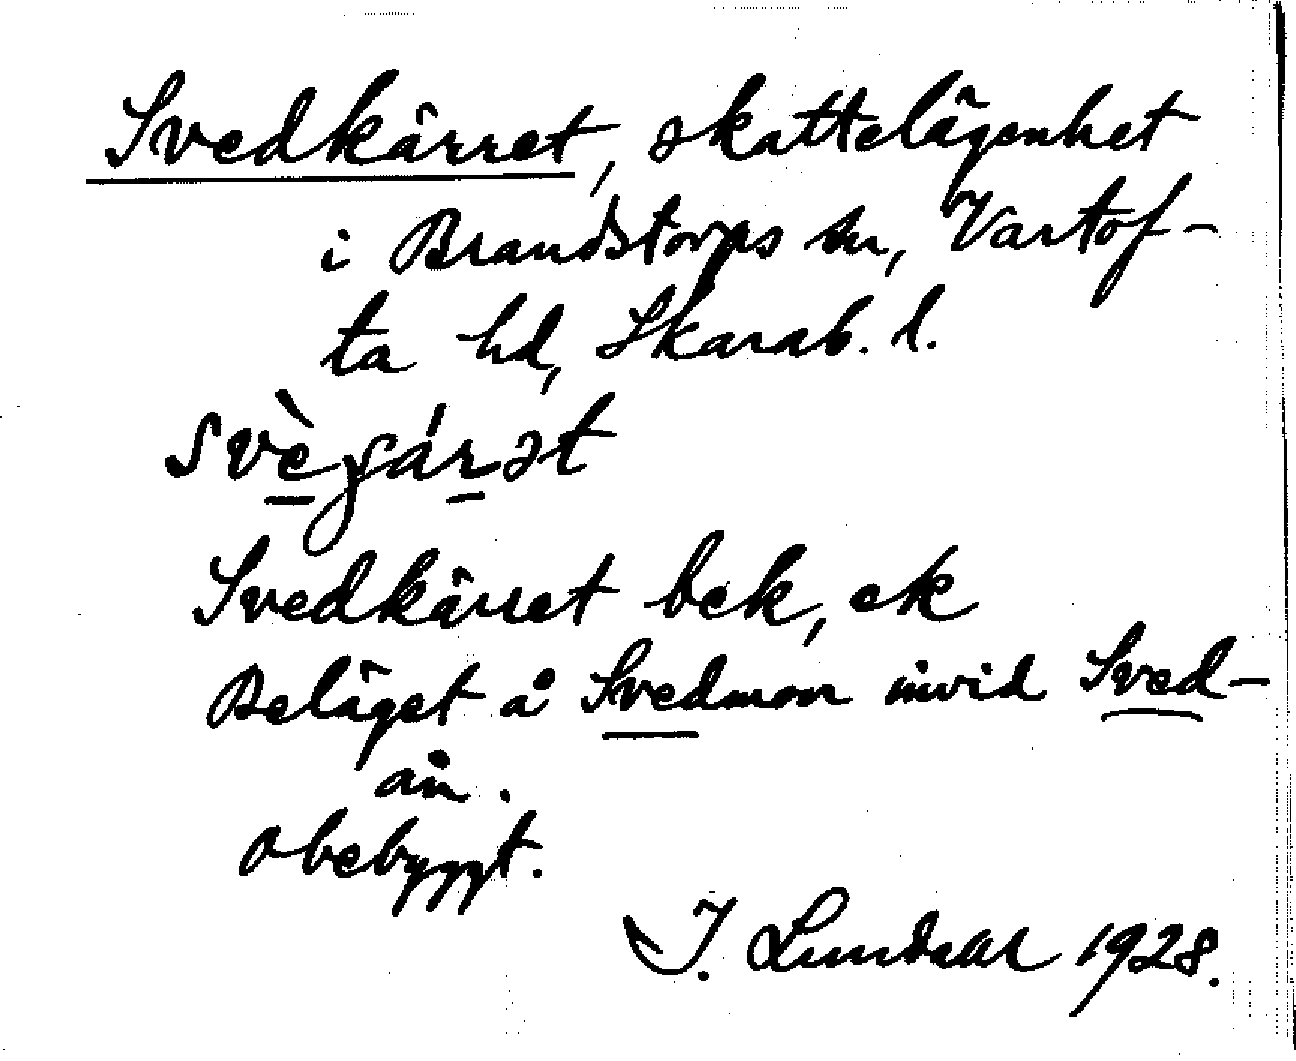 Svedkärret, skattelägenhet
i Brandstorps sn, Vartof-
ta hd, Skarab. l.
Svedkärret bek, ek
Beläget å Svedmon invid Sved-
ån.
Obebyggt.
I. Lundahl 1928.